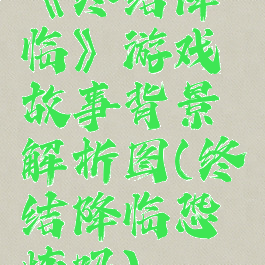 《终结降
临》游戏
故事背景
解析图(终
结降临恐
怖吗)